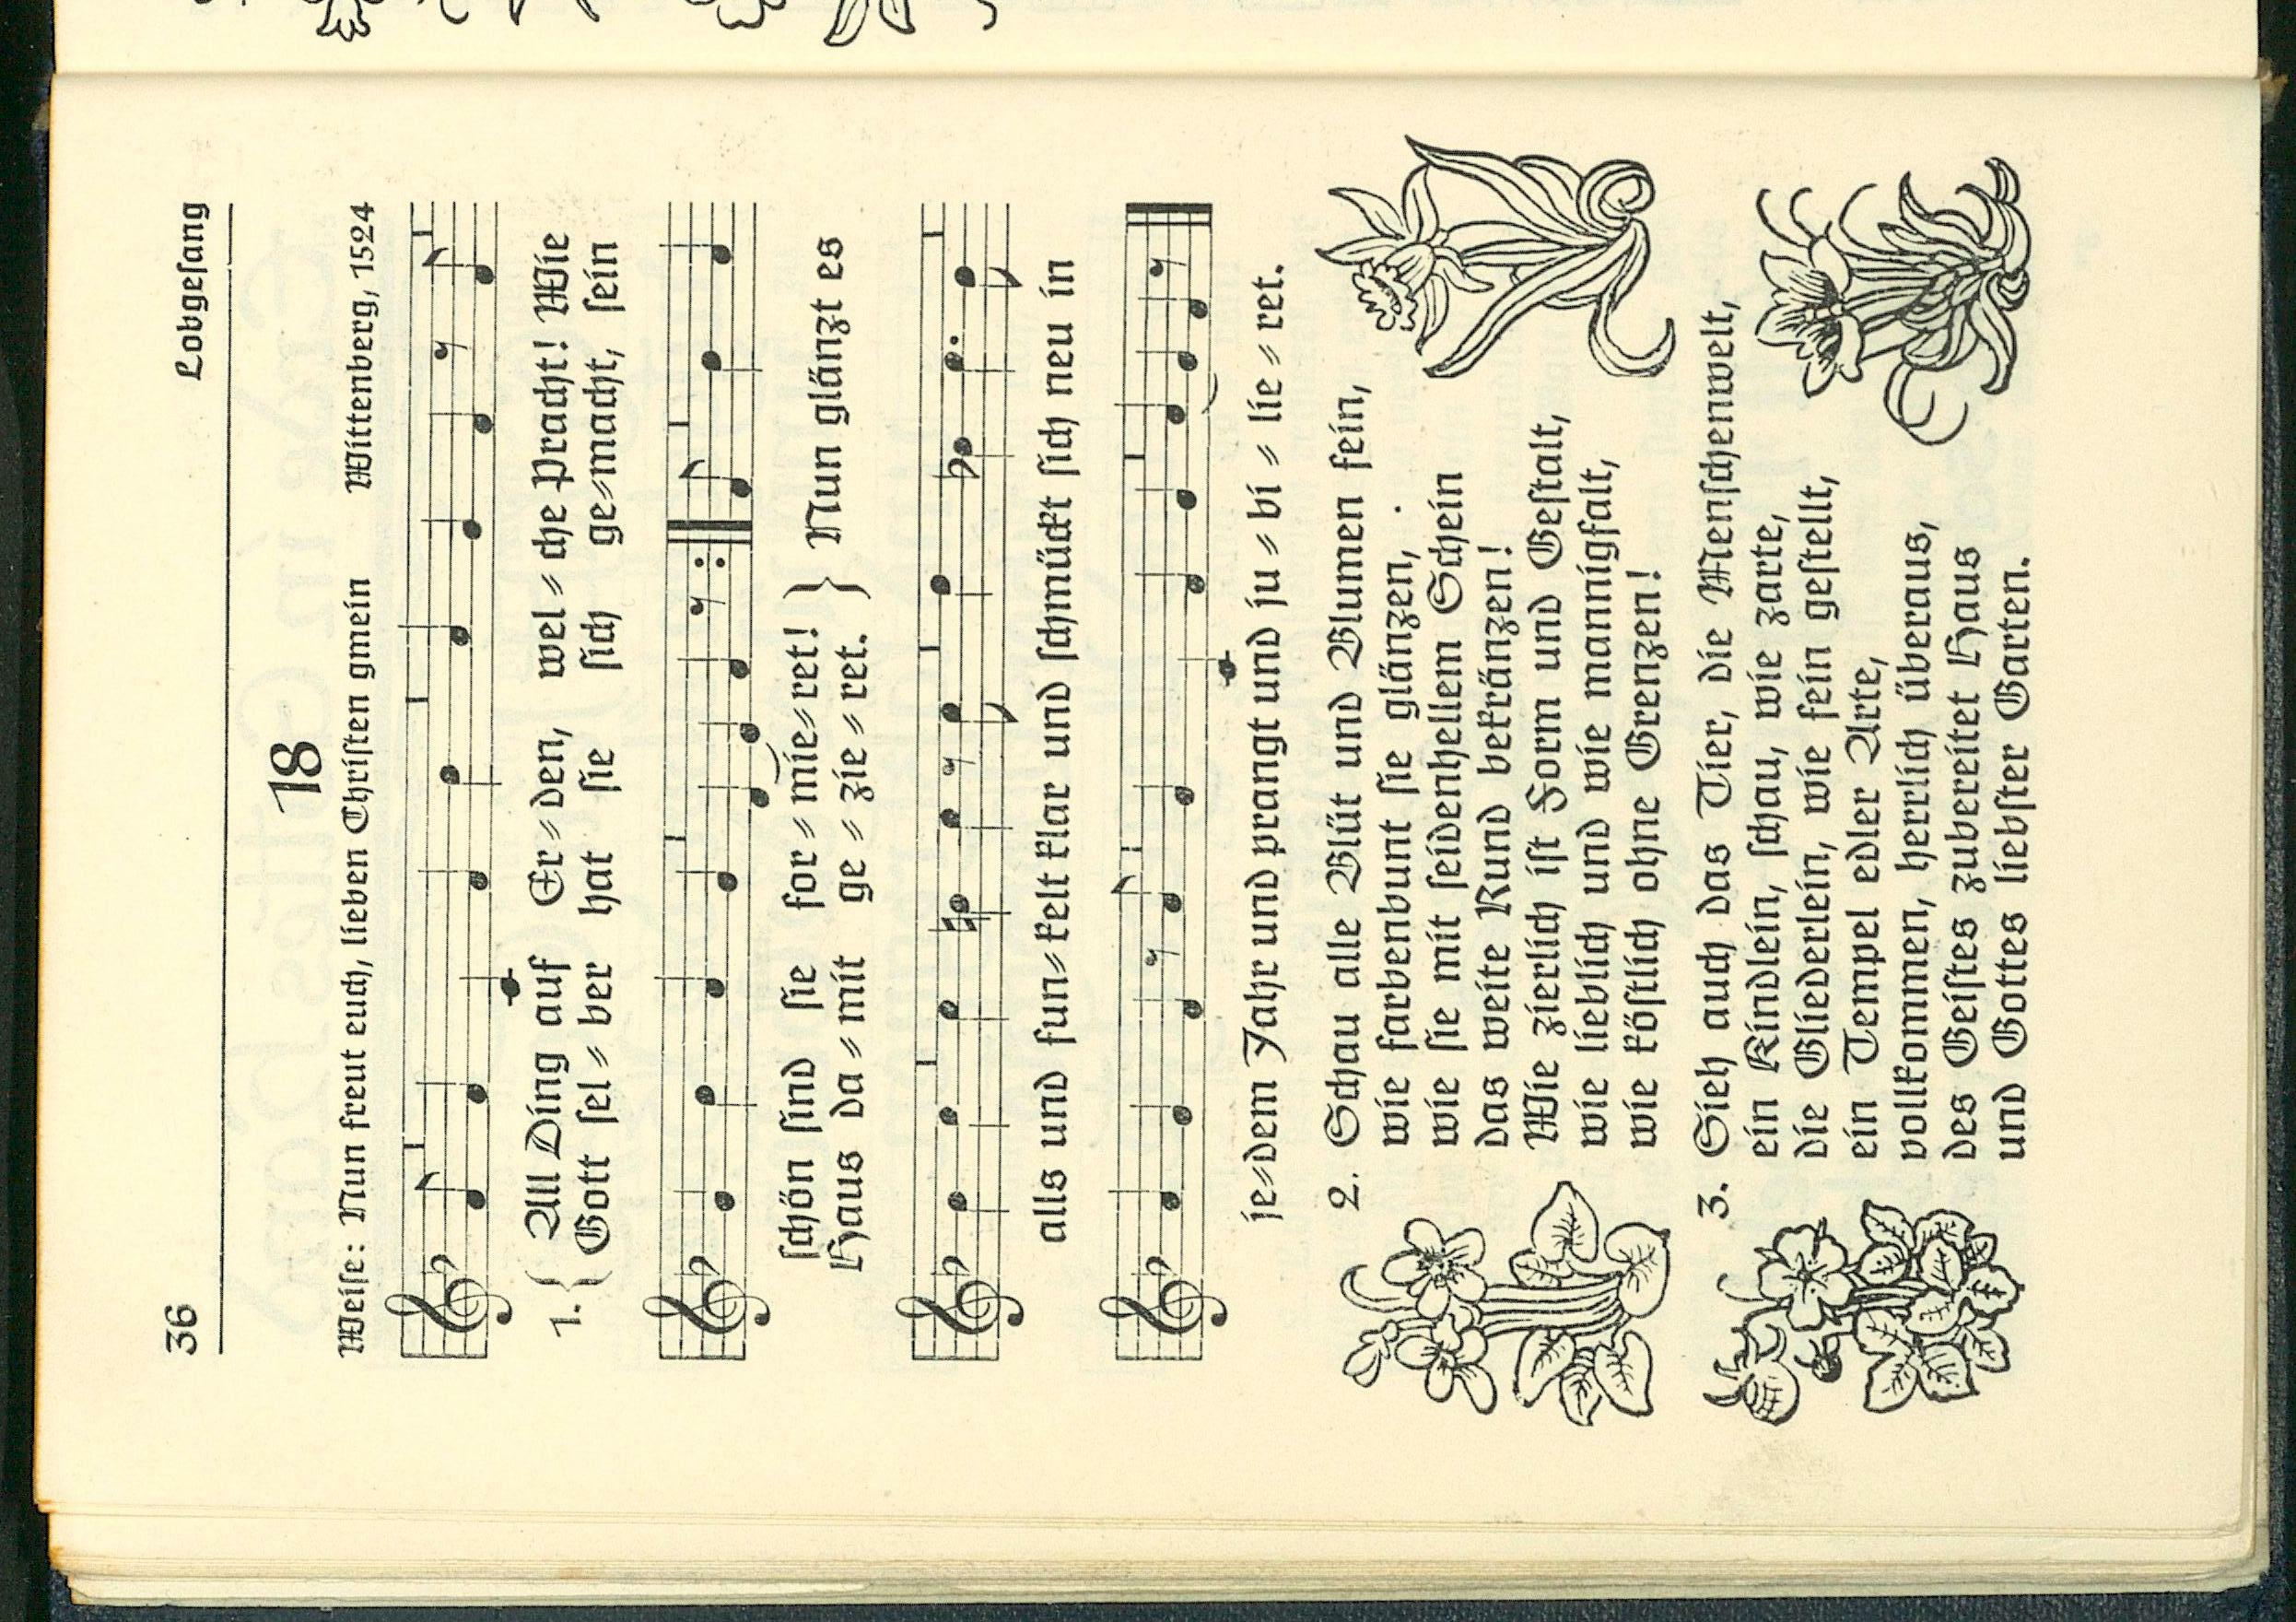 36 Lobgesang
18
Weise: Nun freut euch, lieben Christen gmein Wittenberg, 1524
1. { All Ding auf Er⸗den, wel⸗che Pracht! Wie
Gott sel⸗ber hat sie sich ge⸗macht, sein
schön sind sie for⸗mie⸗ret! } Nun glänzt es
Haus da⸗mit ge⸗zie⸗ret.
alls und fun⸗kelt klar und schmückt sich neu in
je⸗dem Jahr und prangt und ju⸗bi⸗lie⸗ret.
2. Schau alle Blüt und Blumen fein,
wie farbenbunt sie glänzen,
wie sie mit seidenhellem Schein
das weite Rund bekränzen!
Wie zierlich ist Form und Gestalt,
wie lieblich und wie mannigfalt,
wie köstlich ohne Grenzen!
3. Sieh auch das Tier, die Menschenwelt,
ein Kindlein, schau, wie zarte,
die Gliederlein, wie fein gestellt,
ein Tempel edler Arte,
vollkommen, herrlich überaus,
des Geistes zubereitet Haus
und Gottes liebster Garten.